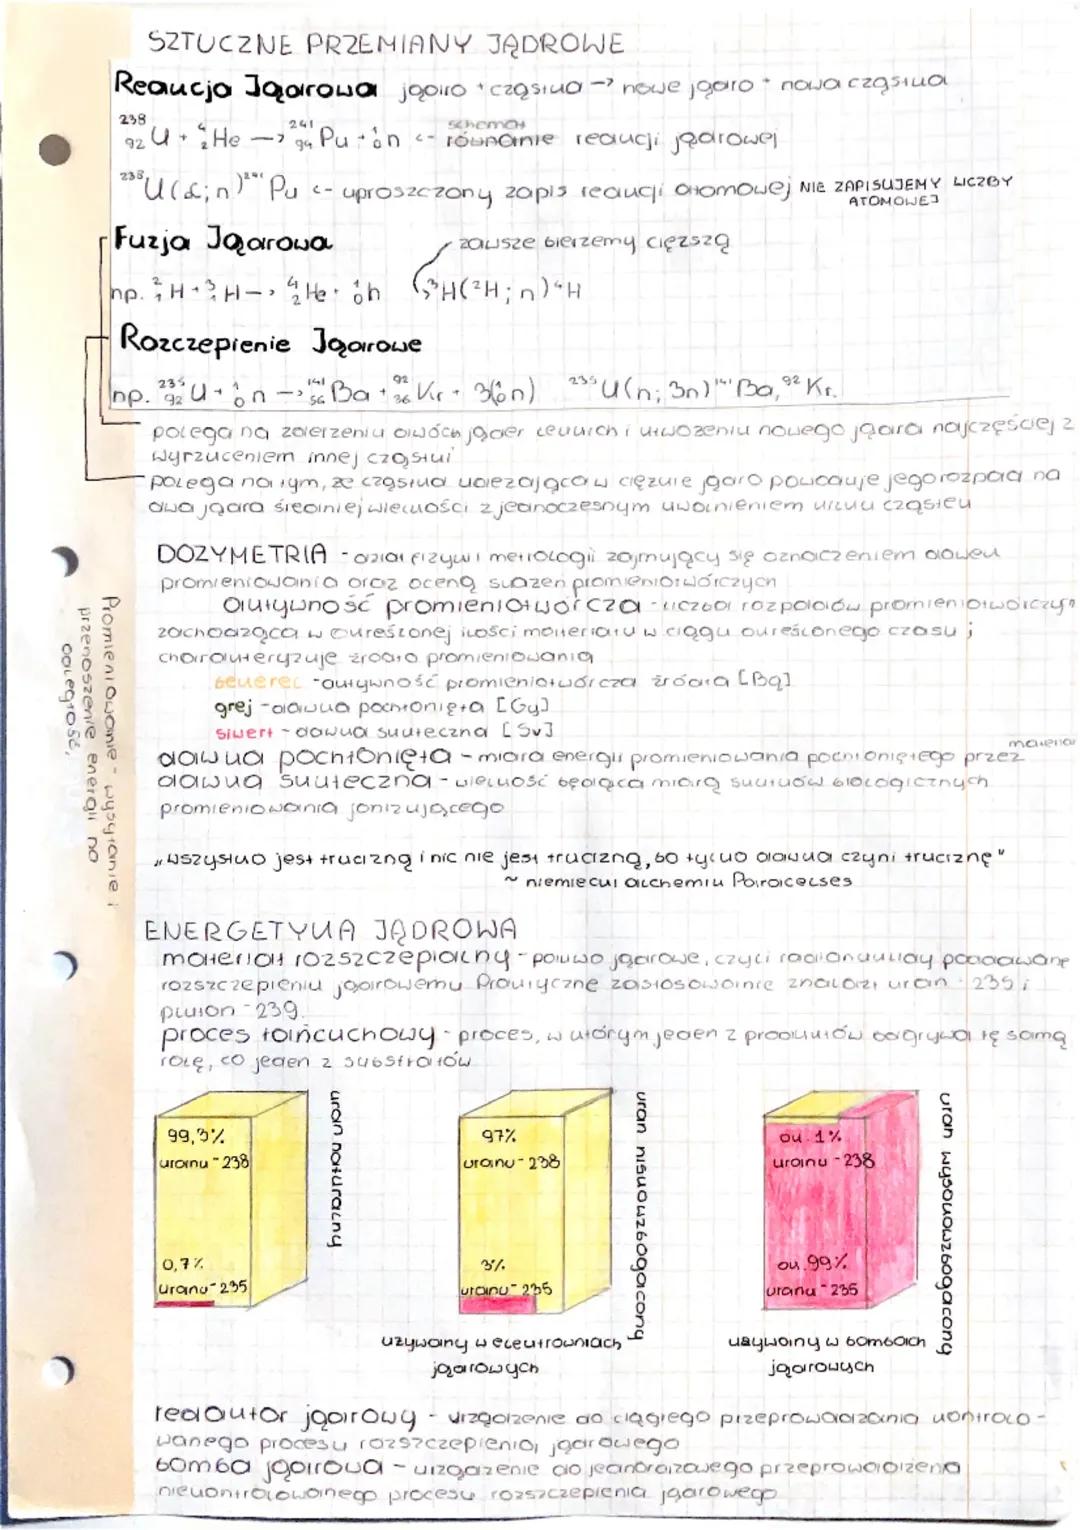 SZTUCZNE PRZEMIANY JĄDROWE
Reakcja Jądrowa jądro + cząstka -> nowe jądro + nowa cząstka
²³⁸₉₂U + ⁴₂He —> ²⁴¹₉₄Pu + ¹₀n <- schemat równanie reakcji jądrowej
²³⁸U(α;n)²⁴¹Pu <- uproszczony zapis reakcji atomowej NIE ZAPISUJEMY LICZBY ATOMOWEJ
Fuzja Jądrowa
zawsze bierzemy cięższą
np. ²₁H + ³₁H —> ⁴₂He + ¹₀n ³H(²H;n)⁴H
Rozczepienie Jądrowe
np. ²³⁵₉₂U + ¹₀n —> ¹⁴¹₅₆Ba + ⁹²₃₆Kr + 3(¹₀n) ²³⁵U(n;3n)¹⁴¹Ba,⁹²Kr.
polega na zderzeniu dwóch jąder lekkich i utwożeniu nowego jądra najczęściej z
wyrzuceniem innej cząstki
polega na tym, że cząstka uderzająca w ciężkie jądro powoduje jego rozpad na
dwa jądra średniej wielkości z jednoczesnym uwolnieniem kilku cząstek
DOZYMETRIA - dział fizyki i metrologii zajmujący się oznaczeniem dawek
promieniowania oraz oceną skażeń promieniotwórczych
aktywność promieniotwórcza - liczba rozpadów promieniotwórczych
zachodząca w określonej ilości materiału w ciągu określonego czasu;
charakteryzuje źródło promieniowania
bekerel - aktywność promieniotwórcza źródła [Bq]
grej - dawka pochłonięta [Gy]
siwert - dawka skuteczna [Sv]
dawka pochłonięta - miara energii promieniowania pochłoniętego przez materiał
dawka skuteczna - wielkość będąca miarą skutków biologicznych
promieniowania jonizującego
„Wszystko jest trucizną i nic nie jest trucizną, bo tylko dawka czyni truciznę"
~ niemiecki alchemik Paracelses
Promieniowanie - wysyłanie i
przenoszenie energii na
odległość,
ENERGETYKA JĄDROWA
materiał rozszczepialny - paliwo jądrowe, czyli radionuklidy poddawane
rozszczepieniu jądrowemu. Praktyczne zastosowanie znalazł uran - 235 i
pluton - 239.
proces łańcuchowy - proces, w którym jeden z produktów odgrywa tę samą
rolę, co jeden z substratów
99,3%
uranu - 238
0,7%
uranu - 235
uran naturalny
97%
uranu - 238
3%
uranu - 235
uran niskowzbogacony
używany w elektrowniach
jądrowych
ok. 1%
uranu - 238
ok. 99%
uranu - 235
uran wysokowzbogacony
używany w bombach
jądrowych
reaktor jądrowy - urządzenie do ciągłego przeprowadzania kontrolo-
wanego procesu rozszczepienia jądrowego
bomba jądrowa - urządzenie do jednorazowego przeprowadzenia
niekontrolowanego procesu rozszczepienia jądrowego